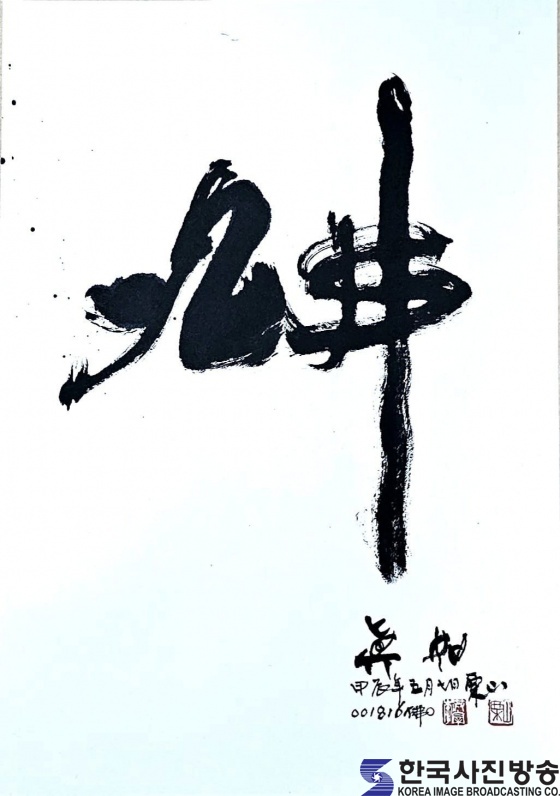 佛
眞如
甲辰年五月七日 栗山
001816佛
한국사진방송
KOREA IMAGE BROADCASTING CO.